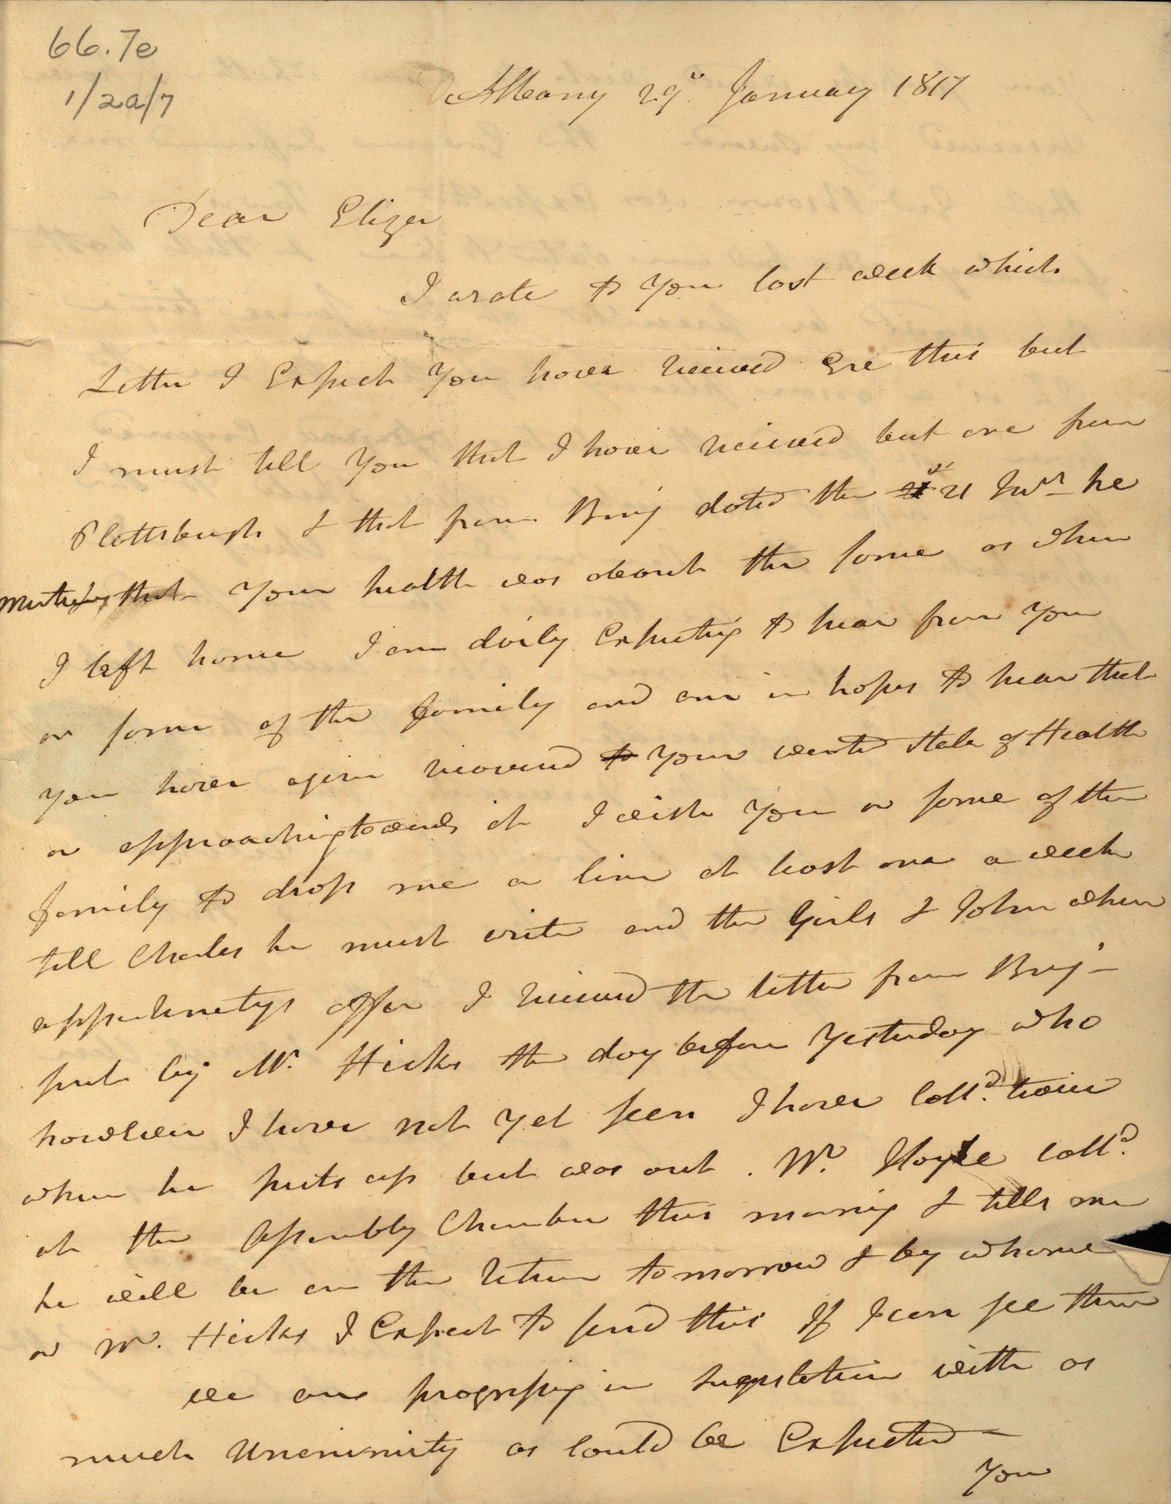 66.7e
1/2a/7
Albany 29th January 1817
Dear Eliza
I wrote to You last week which
Letter I Expect You have received Ere this but
I must tell You that I have received but one from
Plattsburgh & that from Benj dated the 21 he
mentions that Your health was about the same as when
I left home I am daily Expecting to hear from You
or some of the family and am in hopes to hear that
You have again recovered to Your wonted State of Health
or approaching towards it I wish You or some of the
family to drop me a line at least once a week
tell Charles he must write and the Girls & John when
oppertunetys offer I received the letter from Benj
sent by Mr. Hicks the day before Yesterday who
however I have not Yet seen I have calld. twice
where he puts up but was out. Mr. Hoyle calld.
at the Assembly Chamber this morning & tells me
he will be on the return tomorrow & by whome
or Mr. Hicks I Expect to send this If I can see them
we are progressing in legislation with as
much Unanimity as could be Expected
You